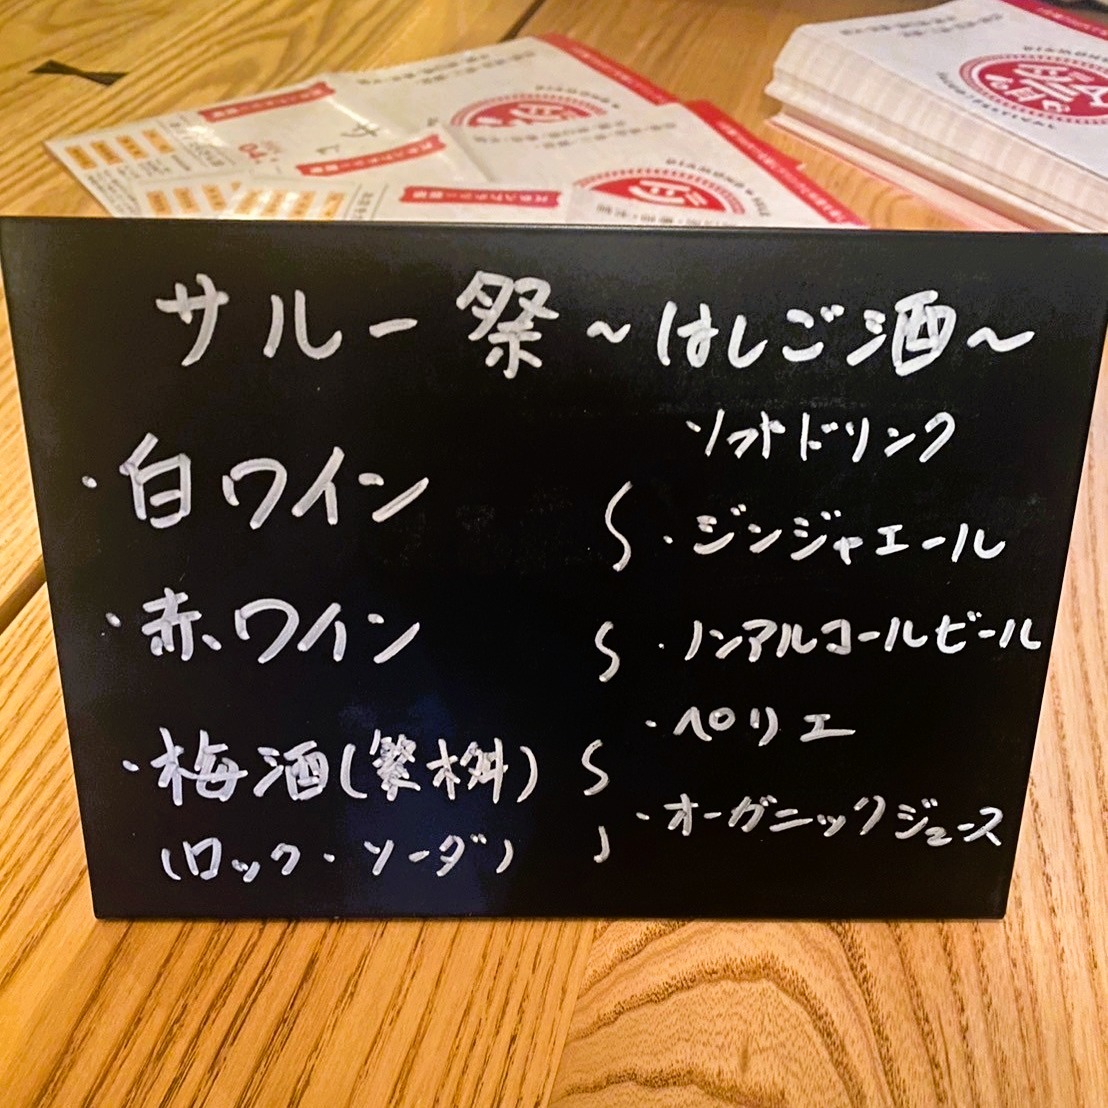 サルー祭~はしご酒~
・白ワイン
・赤ワイン
・梅酒(繁桝)
(ロック・ソーダ)
ソフトドリンク
・ジンジャエール
・ノンアルコールビール
・ペリエ
・オーガニックジュース